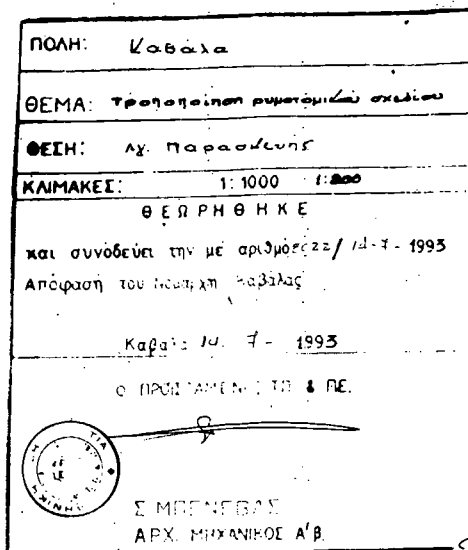 ΠΟΛΗ: Καβάλα
ΘΕΜΑ: Τροποποίηση ρυμοτομικού σχεδίου
ΘΕΣΗ: Αγ. Παρασκευής
ΚΛΙΜΑΚΕΣ: 1:1000 1:200
ΘΕΩΡΗΘΗΚΕ
και συνοδεύει την με αριθμό 22/14-7-1993
Απόφαση του Νομάρχη Καβάλας
Καβάλα 14. 7 - 1993
Ο ΠΡΟΪΣΤΑΜΕΝΟΣ ΤΠ & ΠΕ.
Σ ΜΠΕΝΕΒΑΣ
ΑΡΧ. ΜΗΧΑΝΙΚΟΣ Α'Β.